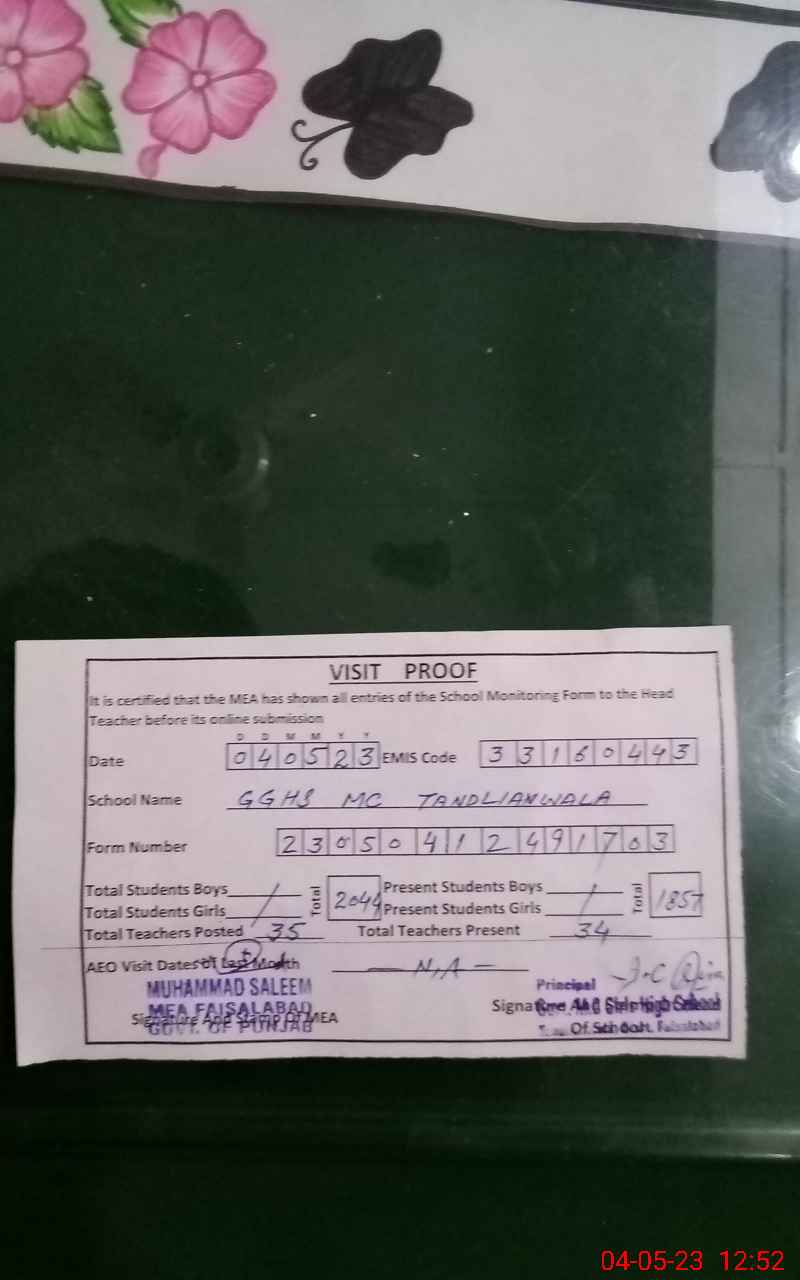 VISIT PROOF
It is certified that the MEA has shown all entries of the School Monitoring Form to the Head
Teacher before its online submission
D D M M Y Y
Date 040523 EMIS Code 33160443
School Name GGHS MC TANDLIANWALA
Form Number 23050412491703
Total Students Boys / Total 2044 Present Students Boys / Total 1857
Total Students Girls Present Students Girls
Total Teachers Posted 35 Total Teachers Present 34
AEO Visit Dates of Last Month N,A
MUHAMMAD SALEEM
MEA FAISALABAD
GOVT. OF PUNJAB
Signature And Stamp Of MEA
Principal
Signature
Girls High School
Of School
Faisalabad
04-05-23 12:52